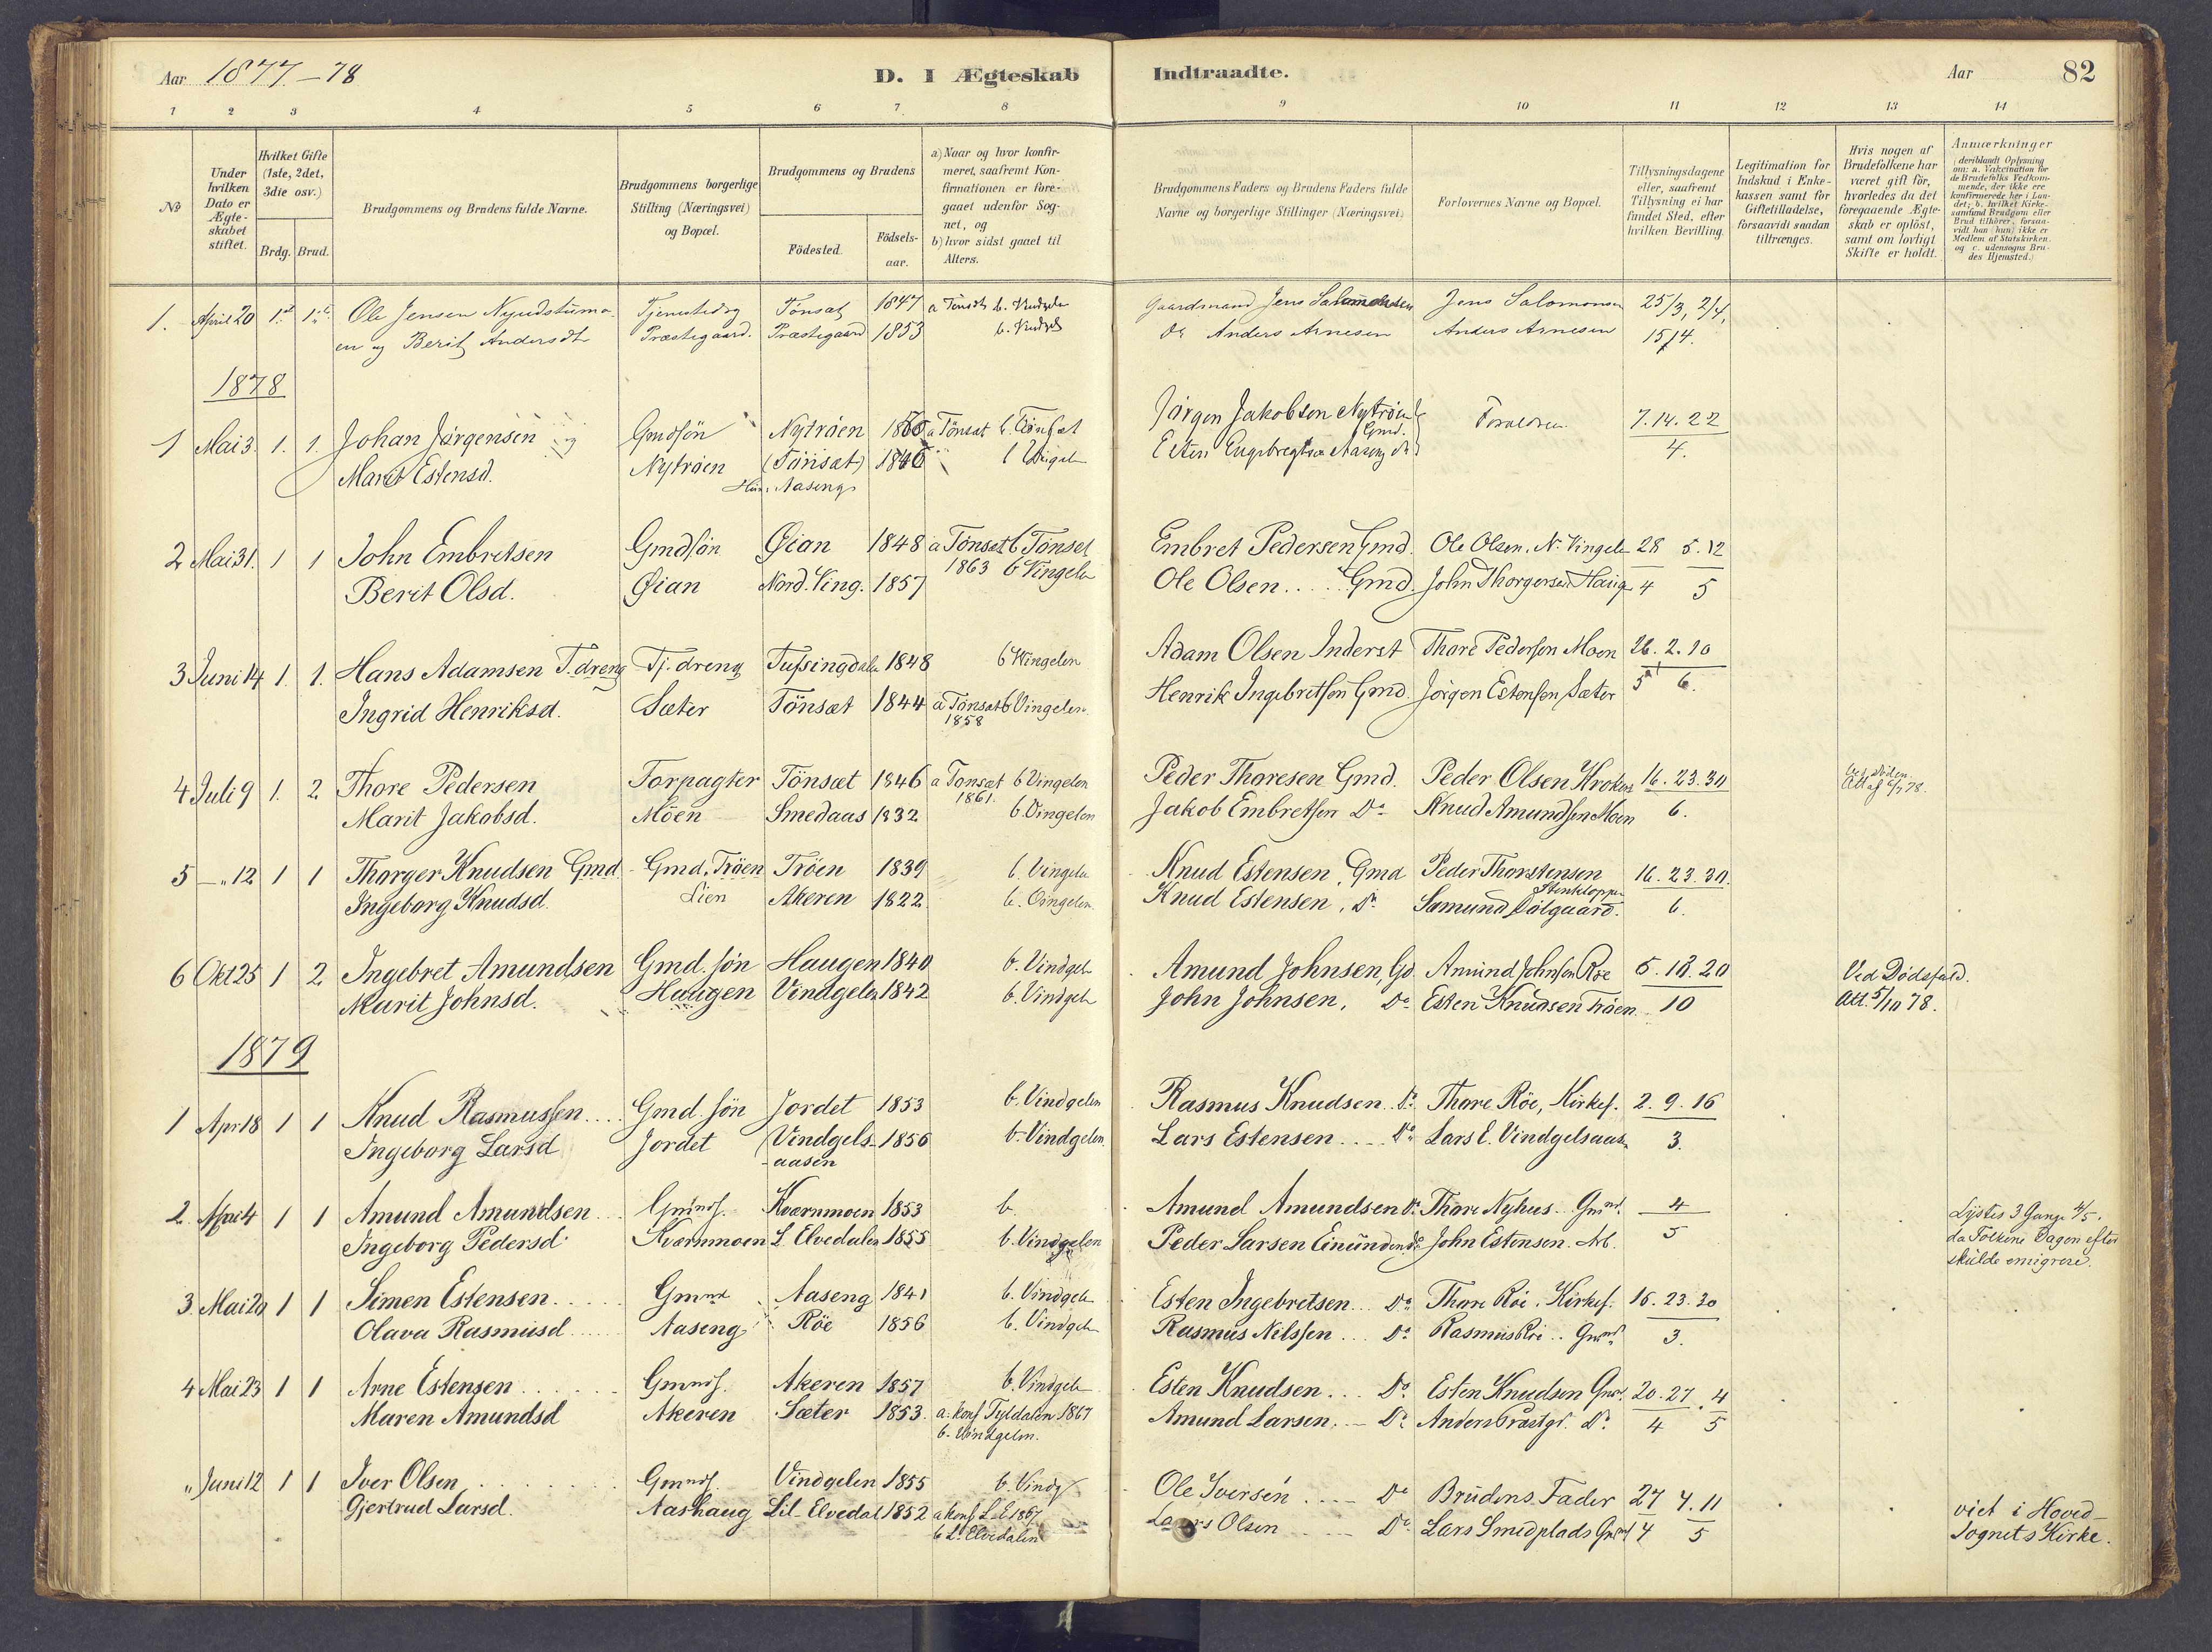 Aar 1877-78
D. I Ægteskab Indtraadte.
Aar
82
1 2 3 4 5 6 7 8 9 10 11 12 13 14
№
Under hvilken Dato er Ægteskabet stiftet.
Hvilket Gifte (1ste, 2det, 3die osv.)
Brdg. Brud.
Brudgommens og Brudens fulde Navne.
Brudgommens borgerlige Stilling (Næringsvei) og Bopæl.
Brudgommens og Brudens
Födested.
Födselsaar.
a) Naar og hvor konfirmeret, saafremt Konfirmationen er foregaaet udenfor Sognet, og
b) hvor sidst gaaet til Alters.
Brudgommens Faders og Brudens Faders fulde Navne og borgerlige Stillinger (Næringsvei)
Forlovernes Navne og Bopæl.
Tillysningsdagene eller, saafremt Tillysning ei har fundet Sted, efter hvilken Bevilling.
Legitimation for Indskud i Enkekassen samt for Giftetilladelse, forsaavidt saadan tiltrænges.
Hvis nogen af Brudefolkene har været gift för, hvorledes da det foregaaende Ægteskab er oplöst, samt om lovligt Skifte er holdt.
Anmærkninger (deriblandt Oplysning om: a. Vakcination för de Brudefolks Vedkommende, der ikke ere konfirmerede her i Landet; b. hvilket Kirkesamfund Brudgom eller Brud tilhörer, forsaavidt han (hun) ikke er Medlem af Statskirken, og c. udensogns Brudes Hjemsted.)
1. April 20 1 1 Ole Jensen Tönsæt 1847 a Tönsæt b. Gaardmand Jens Salomonsen Jens Salomonsen 25/3, 2/4,
en og Berit Andersdt Præstegaard. Præstegaard 1853 b. Do Anders Arnesen Anders Arnesen 15/4.
1878
1 Mai 3. 1. 1. Johan Jørgensen og Gmdsön Nytröen a Tönsæt b. Tönsæt Jørgen Jakobsen Nytröen Gmd. Forældren 7.14.22
Marit Estensd. Nytröen (Tönsæt) b Vingelen Esten Engebregtsen Aaseng do 4.
Aaseng
2 Mai 31. 1 1 John Embretsen Gmdsön Øian 1848 a Tönset b Tönset Embret Pedersen Gmd. Ole Olsen. N. Vingelen 28 5.12
Berit Olsd. Øian Nord. Ving. 1857 1863 b Vingelen Ole Olsen.... Gmd. John Thorgersen Haug 4 5
3 Juni 14 1. 1. Hans Adamsen T.dreng Tj. dreng Tufsingdalen 1848 b Vingelen Adam Olsen Inderst Thore Pedersen Moen 26.2.10
Ingrid Henriksd. Sæter Tönsæt 1844 a Tönsæt b Vingelen Henrik Ingebretsen Gmd. Jörgen Estensen Sæter 5 6.
1858
4 Juli 9 1. 2 Thore Pedersen Forpagter Tönsæt 1846 a Tonsæt b Vingelen Peder Thoresen Gmd. Peder Olsen Kroken 16.23.30 Ved Döden.
1861. Att af 6/7 78.
Marit Jakobsd. Möen Smedaas 1832 b. Vingelen Jakob Embretsen Do Knud Amundsen Moen 6.
5 — " 12 1 1 Thorger Knudsen Gmd Gmd. Tröen Tröen 1839 b. Vingelen Knud Estensen, Gmd Peder Thorstensen 16.23.30.
Ingeborg Knudsd. Lien Akeren 1822 b. Vingelen Knud Estensen, Do Samund Dölgaard. 6.
6 Okt 25 1 2 Ingebret Amundsen Gmd. sön Haugen 1840 b. Vindgeln Amund Johnsen, Gd Amund Johnsen Röe 6.18.20 Ved Dödsfald.
Marit Johnsd. Haugen Vindgelen 1842 b. Vindgeln John Johnsen, Do Esten Knudsen Tröen 10 Att. 5/10 78.
1879
1 Apr 18 1 1 Knud Rasmussen.... Gmd. sön Jordet 1853 b. Vindgelen Rasmus Knudsen.. Do Thore Röe, Kirkes. 2.9.16
Ingeborg Larsd Jordet Vindgels- 1856 b. Vindgelen. Lars Estensen.... Do Lars E. Vindgelsaasn 3.
aasen
2. 4 1 1 Amund Amundsen... Gmnds. Kværnmoen 1853 b. Amund Amundsen Do Thore Nyhus.. Gmnd. 4 Lystes 3 Gange 4/5.
Ingeborg Pedersd. Kværnmoen L. Elvedalen 1855 b. Vindgelen Peder Larsen Einunden Do John Estensen. Arb. 5 da Folkene Dagen efter
skulde emigrere.
3. Mai 20 1 1 Simen Estensen..... Gmnd Aaseng 1841 b. Vindgeln Esten Ingebretsen... Do Thore Röe. Kirkes. 16.23.30
Olava Rasmusd..... Aaseng Röe 1856 b. Vindgeln Rasmus Nilssen... Do Rasmus Röe.. Gmnd 3.
4 Mai 23 1 1 Arne Estensen...... Gmnds. Akeren 1857 b. Vindgeln Esten Knudsen... Do Esten Knudsen Gmd. 20.27.4
Maren Amundsd Akeren Sæter 1853. a. konf Tyldalen 1867 Amund Larsen.. Do Anders Præstgd. Do 4 5
b. Vindgelen.
" Juni 12 1 1 Iver Olsen........ Gmnds. Vindgelen 1855 b. Vindg Ole Iversen.... Do Brudens Fader 27 4.11 viet i Hoved-
Gjertrud Larsd. Aashaug Lil- Elvedal 1852 a konf L. E 1867 Lars Olsen.... Do Lars Smedplads Gmd 4 5 Sognets Kirke.
b L. Elvedalen